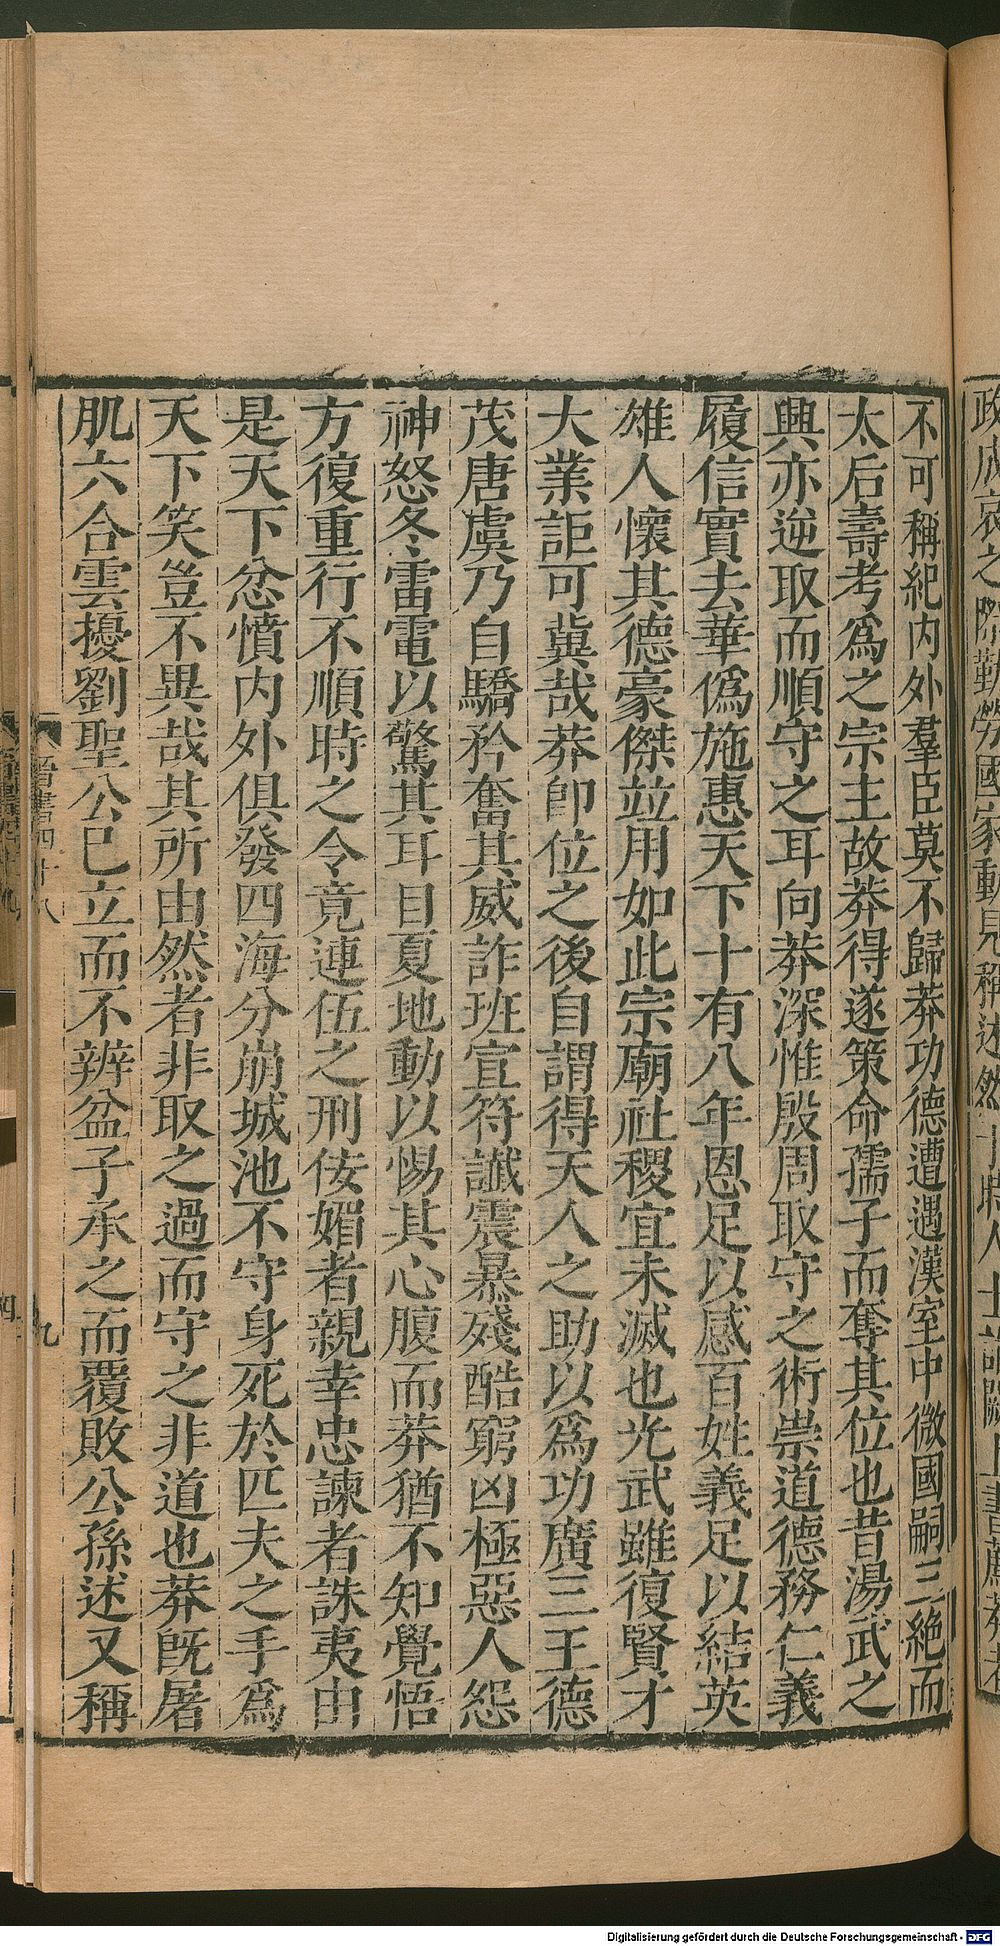 不可稱紀内外羣臣莫不歸莽功德遭遇漢室中微國嗣三絶而
太后壽考爲之宗主故莽得遂策命孺子而奪其位也昔湯武之
興亦逆取而順守之耳向莽深惟殷周取守之術崇道德務仁義
履信實去華僞施惠天下十有八年恩足以感百姓義足以結英
雄人懷其德豪傑並用如此宗廟社稷宜未滅也光武雖復賢才
大業詎可冀哉莽即位之後自謂得天人之助以爲功廣三王德
茂唐虞乃自驕矜奮其威詐班宣符讖震暴殘酷窮凶極惡人怨
神怒冬雷電以驚其耳目夏地動以惕其心腹而莽猶不知覺悟
方復重行不順時之令竟連伍之刑佞媚者親幸忠諫者誅夷由
是天下忿憤内外俱發四海分崩城池不守身死於匹夫之手爲
天下笑豈不異哉其所由然者非取之過而守之非道也莽既屠
肌六合雲擾劉聖公已立而不辨盆子承之而覆敗公孫述又稱
晉書四十八
九
Digitalisierung gefördert durch die Deutsche Forschungsgemeinschaft - DFG